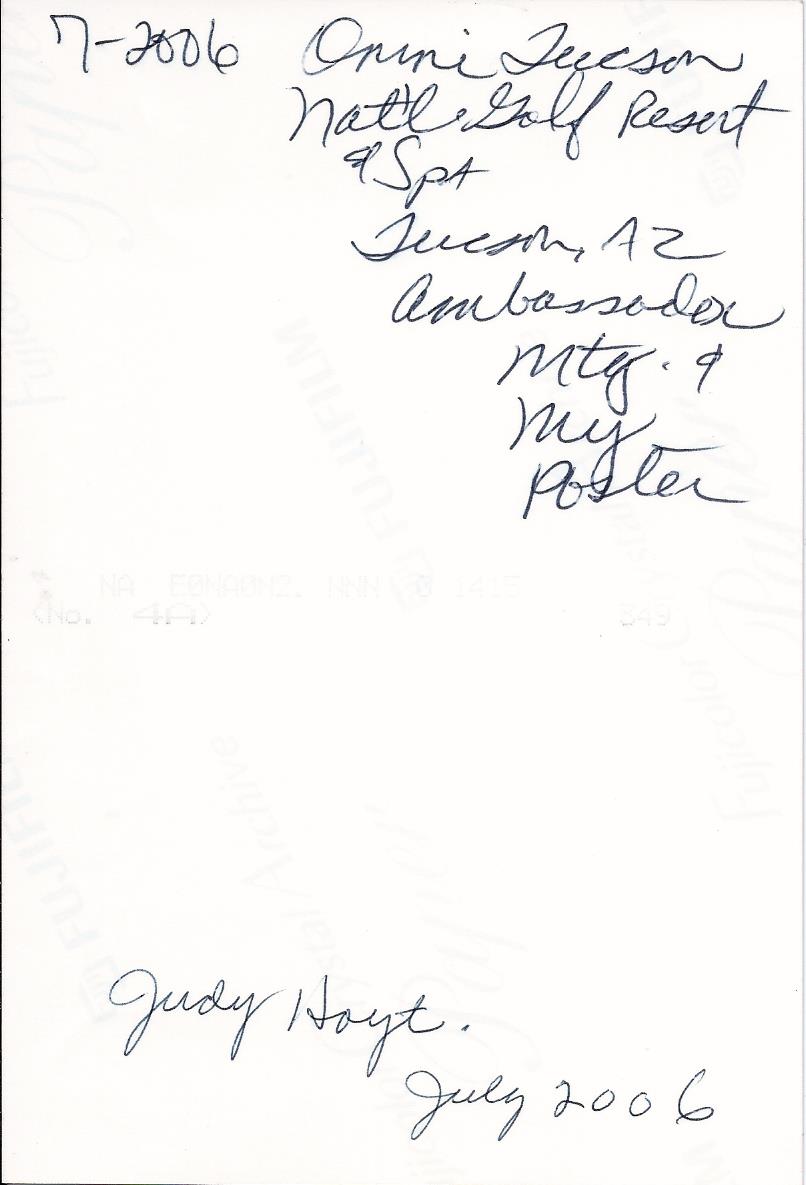 7-2006 Omni Tucson
Nat'l Golf Resort
& Spa
Tucson, AZ
Ambassador
Mtg. &
My
Poster
NA E0NA0N2. NNN 0 1415
<No. 4A> 849
FUJIFILM
Fujicolor Crystal Archive Paper
Judy Hoyt.
July 2006